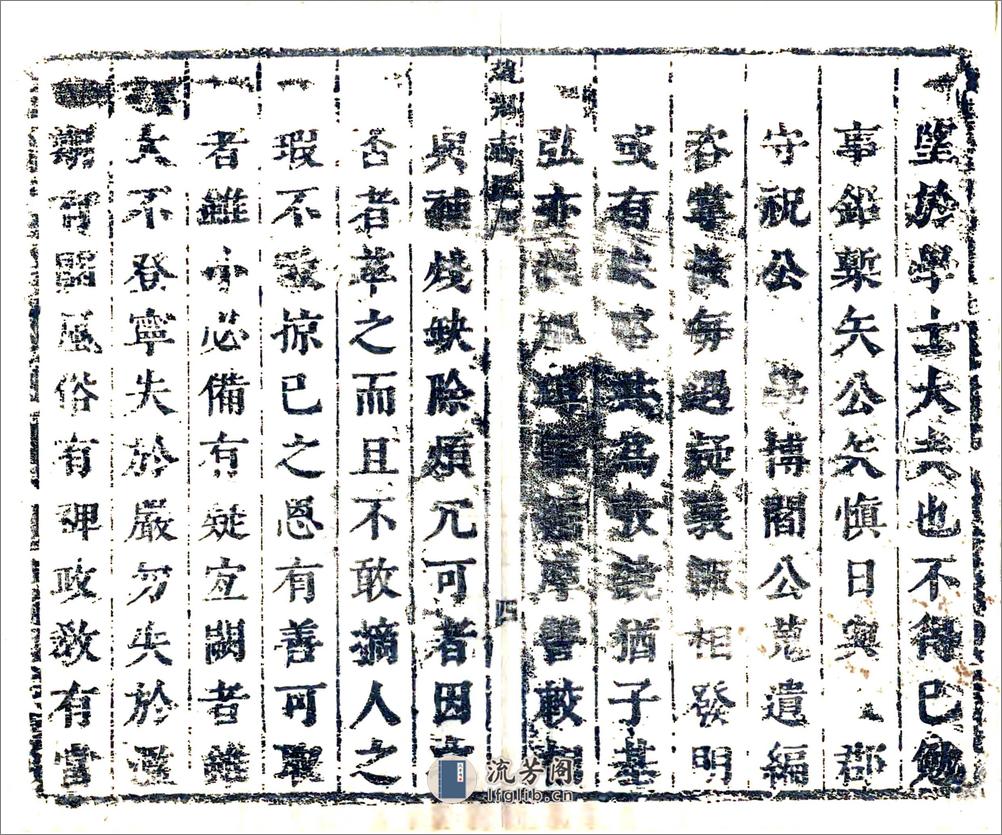 望於學士大夫也不得已勉
事鉛槧矣公矢慎日與郡
守祝公 學博閻公蒐遺編
咨掌故每遇疑義輒相發明
或有缺略共為猶子基
弘亦厚善較
志
四
與補殘缺除煩冗可者因之
否者革之而且不敢摘人之
瑕不敢掠已之恩有善可取
者雖小必備有疑宜闕者雖
大不登寧失於嚴勿失於濫
期有關風俗有裨政教有當
流芳阁
lfglib.cn